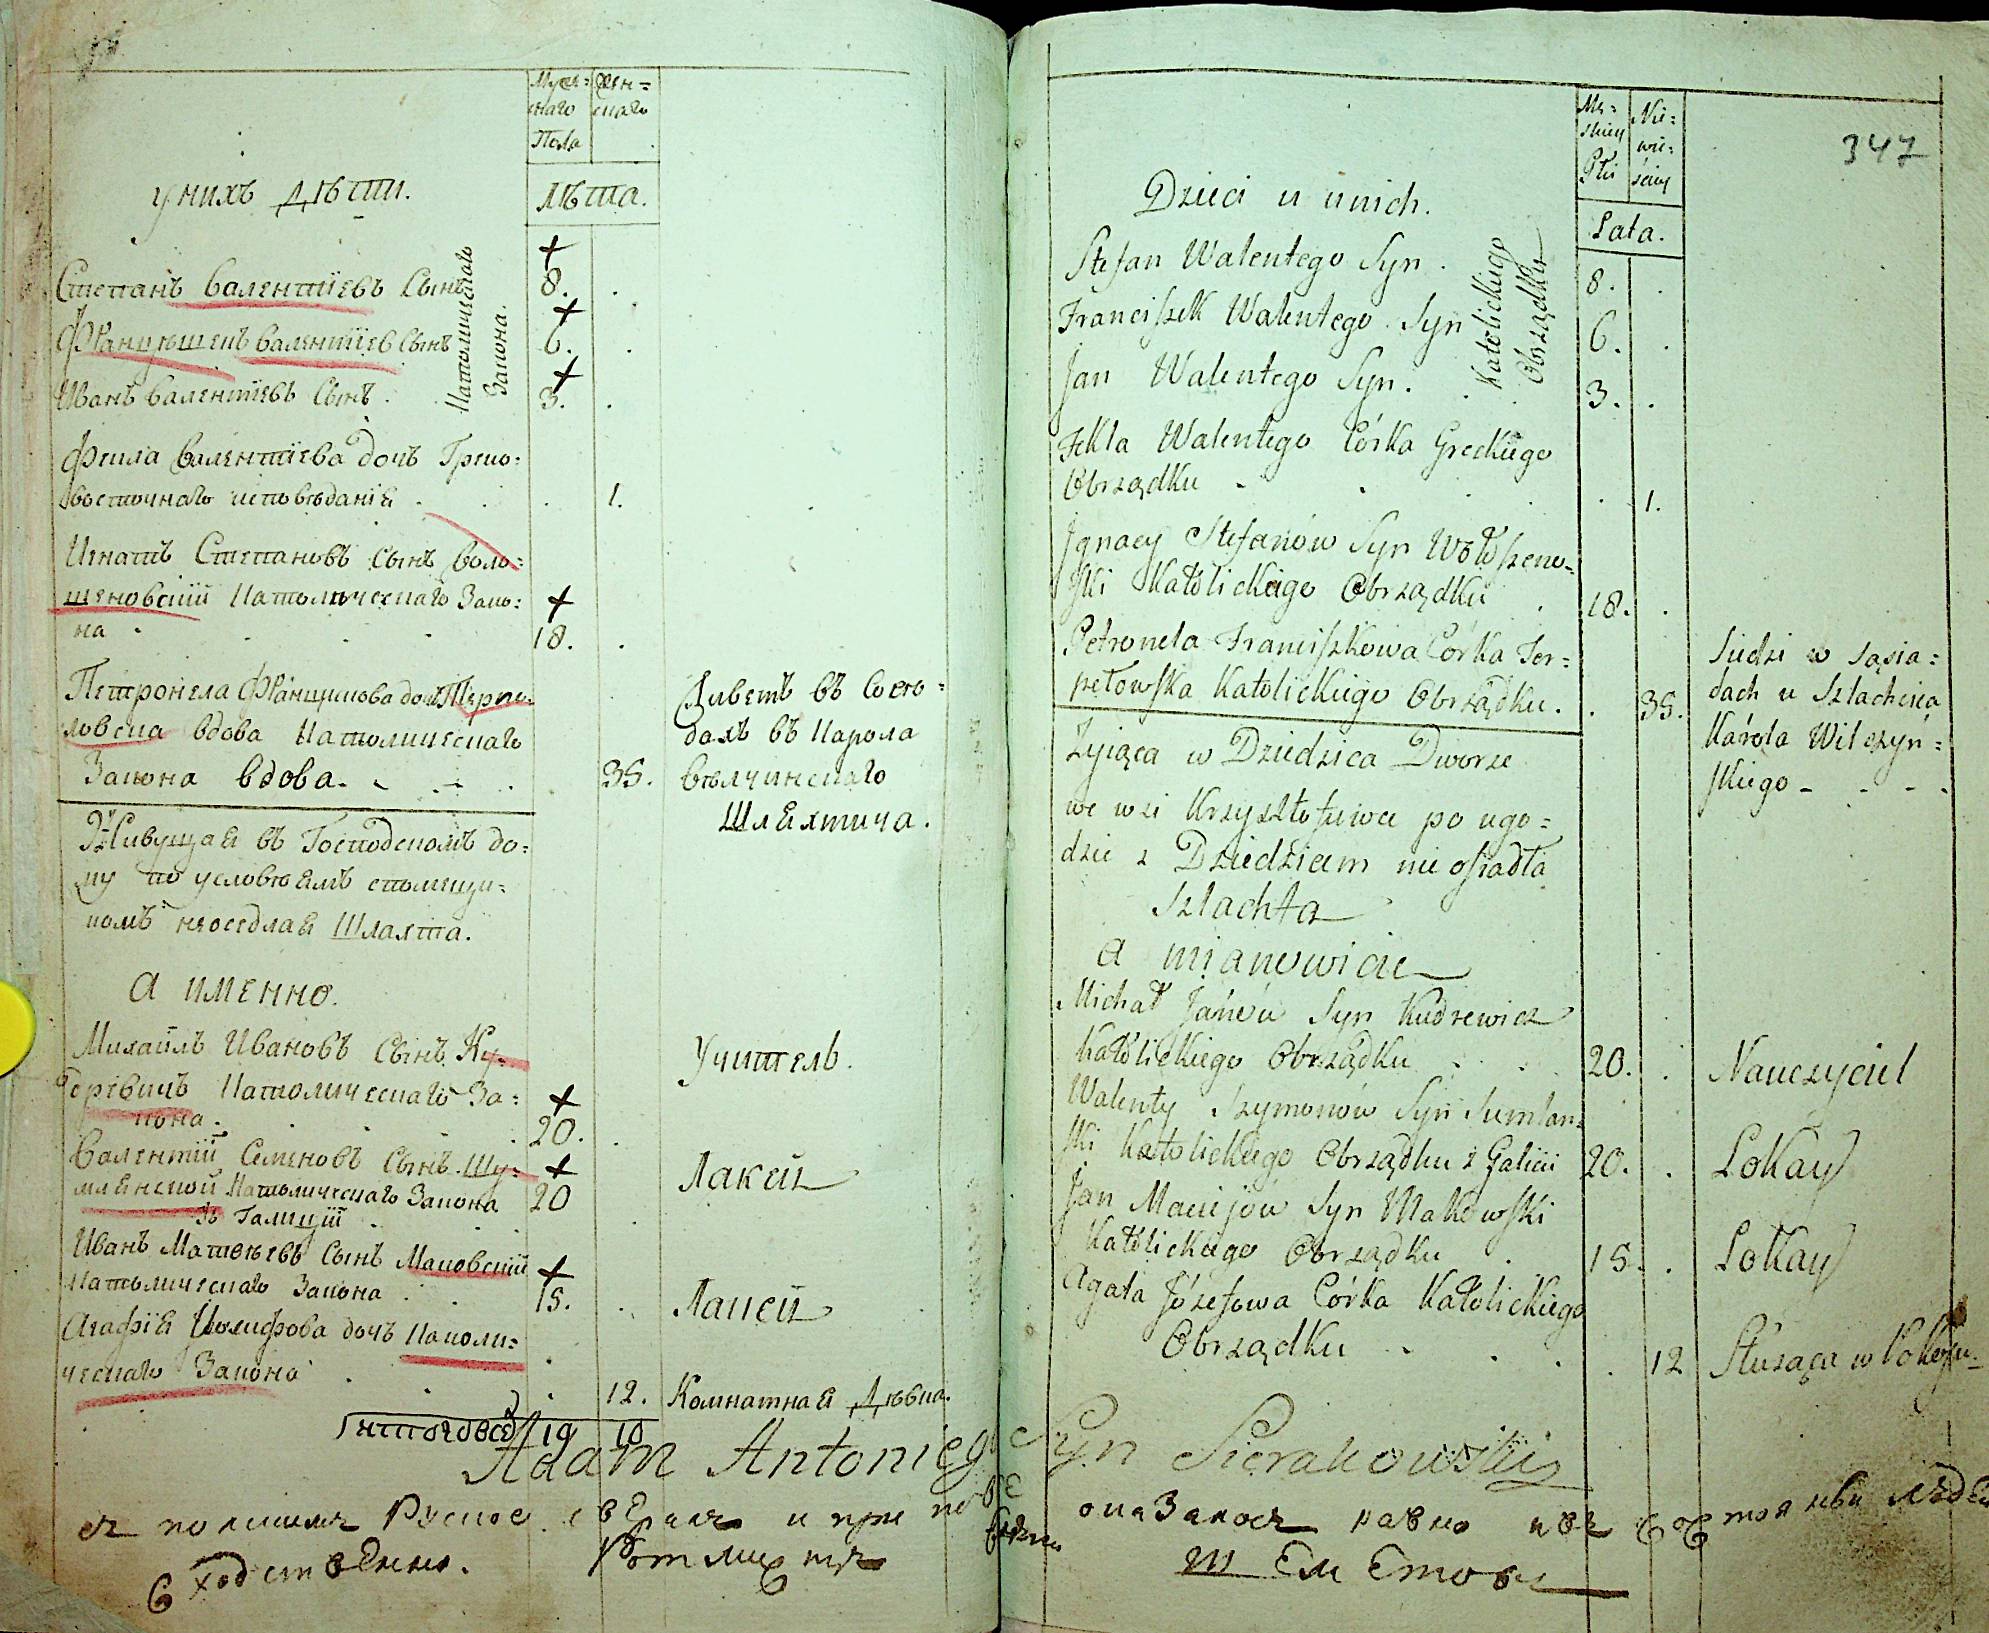 Муж= Жен=
скаго скаго
Пола
у нихъ дѣти.
Лѣта.
Степанъ Валентіевъ Сынъ
8.
Францѣшекъ Валентіев Сынъ
6.
Иванъ Валентіевъ Сынъ
3.
Католическаго
Закона.
Фекла Валентіева дочь Греко=
восточнаго исповѣданія
1.
Игнатъ Степановъ Сынъ Воло=
шеновскій Католическаго Зако=
на
18.
Петронела Францишкова дочь Терпи=
ловска вдова Католическаго
Закона вдова.
35.
Живетъ въ Сосѣ=
дахъ въ Карола
Вѣлчинскаго
Шляхтича.
Живущая въ Господскомъ до=
му по условіямъ спомѣщи=
комъ неоседлая Шляхта.
а именно.
Михаилъ Ивановъ Сынъ Ку=
древичъ Католическаго За=
кона.
20.
Учитель.
Валентій Семеновъ Сынъ Шу=
млянской Католическаго Закона
Зъ Галиціи
20
Лакей
Иванъ Матвѣевъ Сынъ Маковскій
Католическаго Закона
15.
Лакей
Агафія Іосифова дочь Католи=
ческаго Закона
12.
Комнатная Дѣвка.
Итого всѣхъ 19 10
347
Mę= Nie=
skiey wie=
Płci ściey
Dzieci u nich.
Lata.
Stefan Walentego Syn.
8.
Franciszek Walentego Syn
6.
Jan Walentego Syn.
3.
Katolickiego
Obrządku
Tekla Walentego Córka Greckiego
Obrządku
1.
Jgnacy Stefanów Syn Wołoszeno=
wski Katolickiego Obrządku
18.
Petronela Franciszkowa Córka Ter=
pełowska Katolickiego Obrządku.
35.
Siedzi w sąsia=
dach u Szlachcica
Karola Wilczyń=
skiego
Żyiąca w Dziedzica Dworze
we wsi Krzysztofuwce po ugo=
dzie z Dziedzicem nie osiadła
Szlachta
a mianowicie
Michał Janów Syn Kudrewicz
Katolickiego Obrządku
20.
Nauczyciel
Walenty Szymonów Syn Szumlań=
ski Katolickiego Obrządku z Galicii
20.
Lokay
Jan Maciejów Syn Makowski
Katolickiego Obrządku
15.
Lokay
Agata Józefowa Córka Katolickiego
Obrządku
12
Służąca w Pokoju
Adam Antoniego Syn Sierakowski
съ польскимъ Руское свѣрялъ и при повѣ
оказалось равно
Сходственно. Ротмистръ